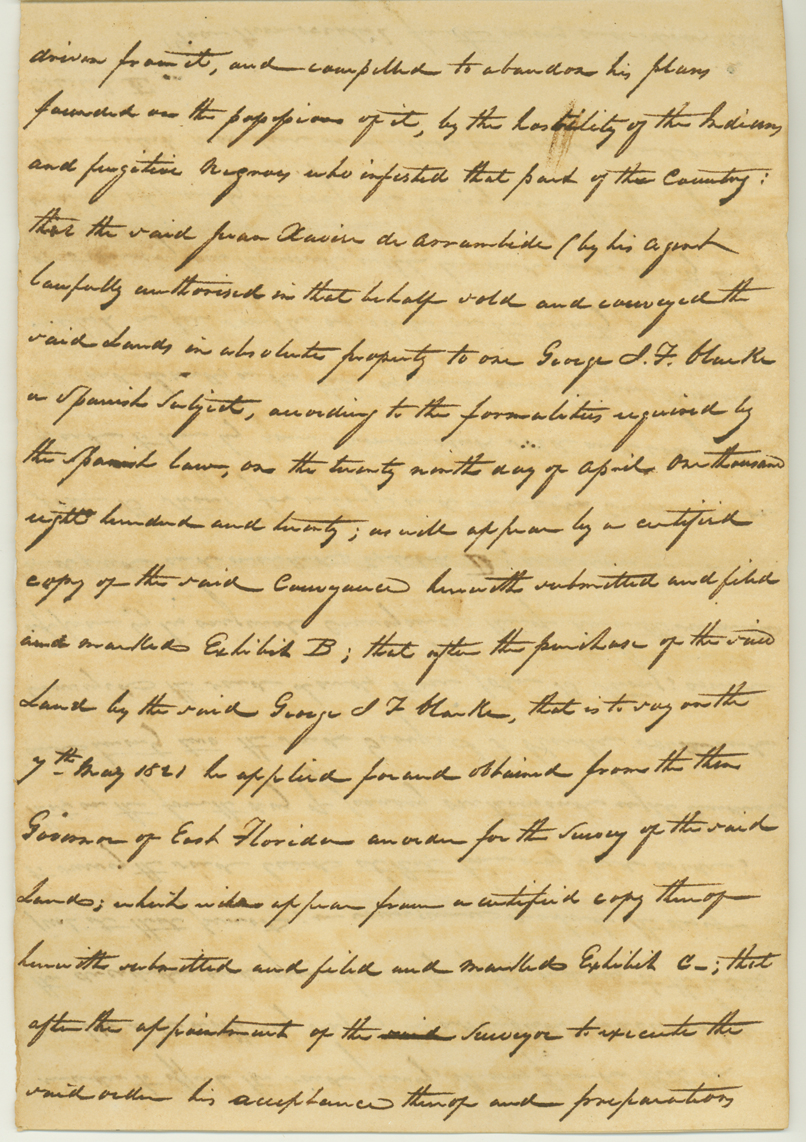 driven from it, and compelled to abandon his plans
founded on the possession of it, by the hostility of the Indians
and fugitive Negroes who infested that part of the Country:
that the said Juan Xavier de Arrambide (by his agent
lawfully authorised in that behalf sold and conveyed the
said Lands in absolute property to one George I. F. Clarke
a Spanish Subject, according to the formalities required by
the Spanish law, on the twenty ninth day of April One thousand
eight hundred and twenty; as will appear by a certified
copy of the said Conveyance herewith submitted and filed
and marked Exhibit B; that after the purchase of the said
Land by the said George I F Clarke, that is to say on the
7th May 1821 he applied for and obtained from the then
Governor of East Florida an order for the Survey of the said
Lands; which will appear from a certified copy thereof
herewith submitted and filed and marked Exhibit C—; that
after the appointment of the said Surveyor to execute the
said order his acceptance thereof and preparations